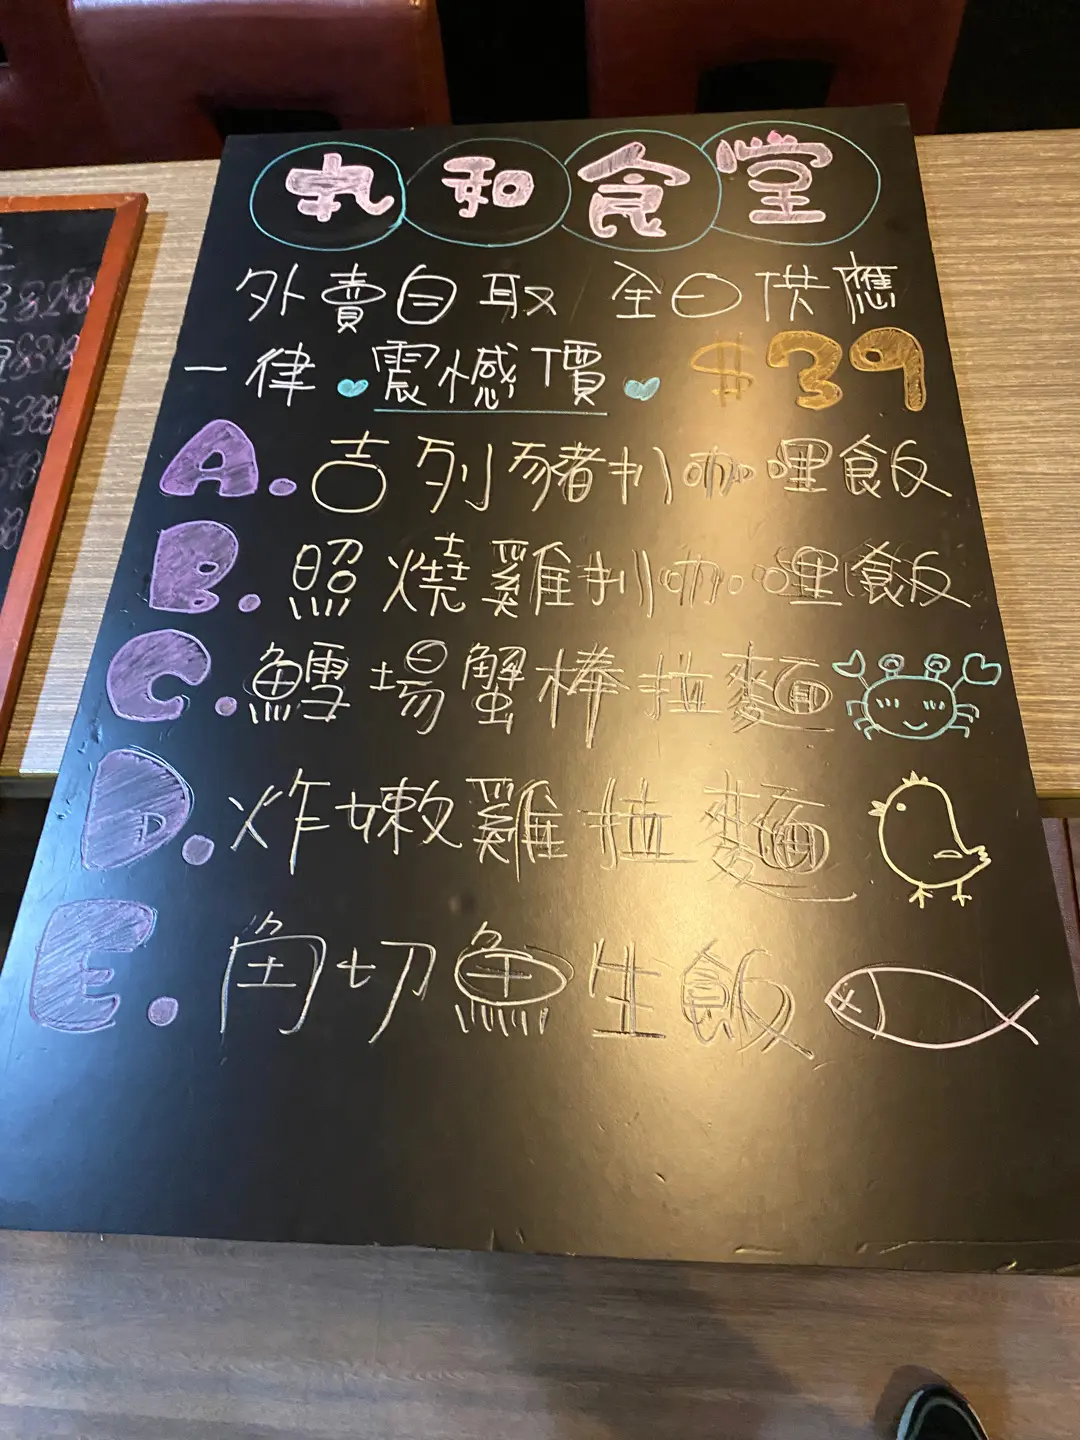 和食堂
外賣自取 全日供應
一律 震憾價 $39
A. 吉列豬扒咖哩飯
B. 照燒雞扒咖哩飯
C. 鱈場蟹棒拉麵
D. 炸嫩雞拉麵
E. 角切魚生飯